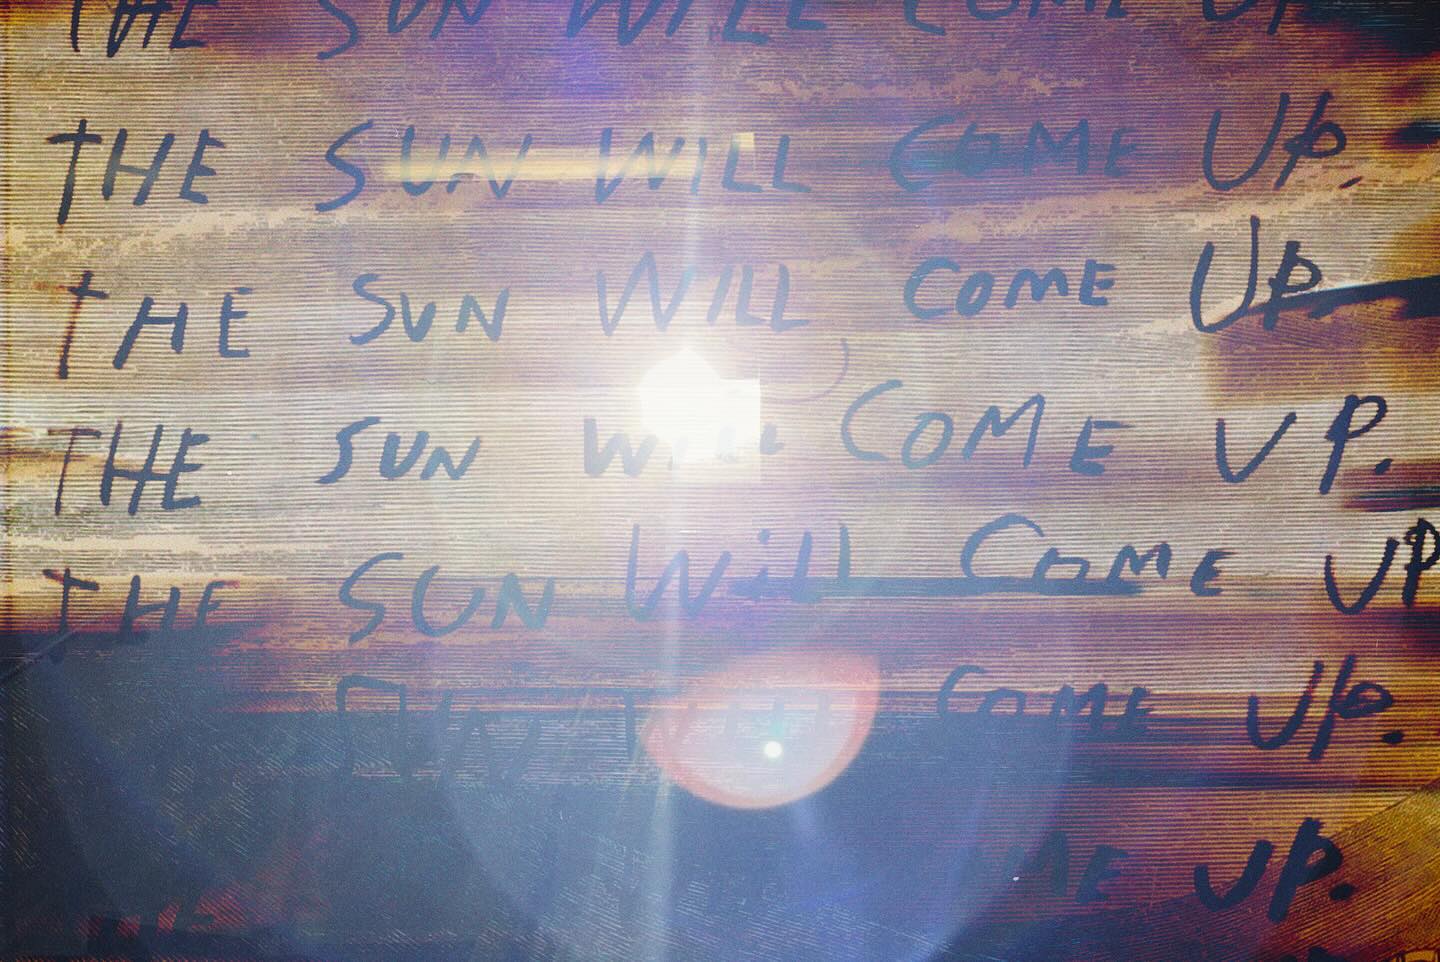 THE SUN WILL COME UP
THE SUN WILL COME UP.
THE SUN WILL COME UP.
THE SUN WILL COME UP.
THE SUN WILL COME UP
SUN WILL COME UP.
ME UP.